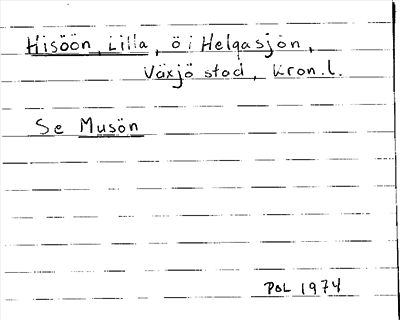 Hisöön, Lilla, ö i Helgasjön,
Växjö stad, Kron. l.
Se Musön
POL 1974